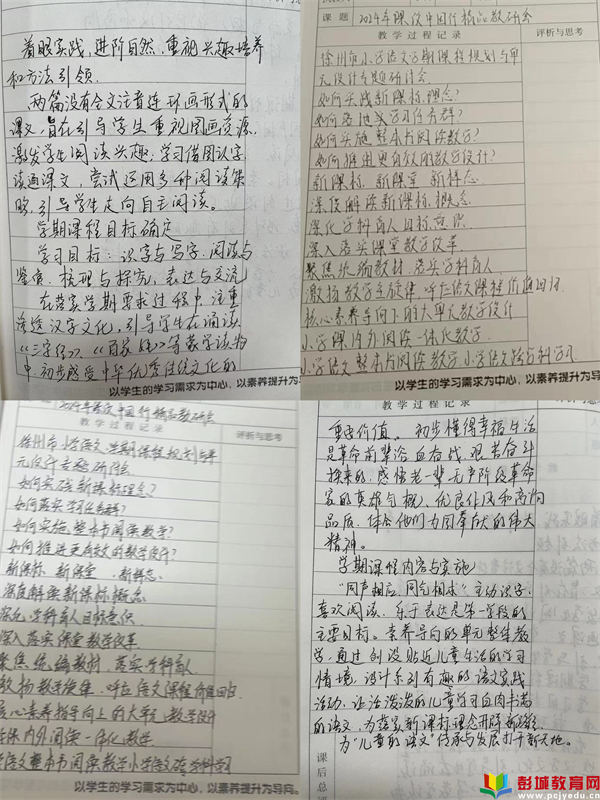 着眼实践,进阶自然,重视兴趣培养
和方法引领。
两篇没有全文注音连环画形式的
课文,旨在引导学生重视图画资源,
激发学生阅读兴趣,学习借图认字,
读通课文,尝试运用多种阅读策
略,引导学生走向自主阅读。
学期课程目标确定
学习目标:识字与写字,阅读与
鉴赏,梳理与探究,表达与交流
在落实学期要求过程中,注重
渗透汉字文化,引导学生在诵读
《三字经》、《百家姓》等蒙学读物
中,初步感受中华优秀传统文化的
以学生的学习需求为中心,以素养提升为导
课题 2024年课改中国行精品教研会
教学过程记录 评析与思考
徐州市小学语文学期课程规划与单
元设计专题研讨会
如何实践新课标理念?
如何落实学习任务群?
如何实施整本书阅读教学?
如何推进更有效的教学设计?
新课标 新课堂 新样态
深度解读新课标概念
深化学科育人目标意识
深入落实课堂教学改革
聚焦统编教材,落实学科育人
激扬教学主旋律,呼左语文课程价值回归
核心素养导向下的大单元教学设计
小学课内外阅读一体化教学
小学语文整本书阅读教学小学语文跨学科学习
以学生的学习需求为中心,以素养提升为导
2024年课改中国行精品教研会
教学过程记录 评析与思考
徐州市小学语文学期课程规划与单
元设计专题研讨会
如何实践新课标理念?
如何落实学习任务群?
如何实施整本书阅读教学?
如何推进更有效的教学设计?
新课标 新课堂 新样态
深度解读新课标概念
深化学科育人目标意识
深入落实课堂教学改革
聚焦统编教材,落实学科育人
激扬教学旋律,呼应语文课程价值回归
核心素养指导向上的大单元教学设计
学课内外阅读一体化教学
学语文整本书阅读教学小学语文跨学科学习
以学生的学习需求为中心,以素养提升为导向。
教学过程记录 评析与思考
重要价值。初步懂得幸福生活
是革命前辈浴血奋战、艰苦奋斗
换来的,感悟老一辈无产阶级革命
家的英雄气概、优良作风和高尚
品质,体会他们为国奉献的伟大
精神。
学期课程内容与实施
“同声相应,同气相求”主动识字,
喜欢阅读,乐于表达是第一学段的
主要目标。素养导向的单元整体教
学,通过创设贴近儿童生活的学习
情境,设计系列有趣的语文实践
活动,让活泼泼的儿童学习白肉书薷
的语文,为落实新课标理念开辟新路径,
为“儿童的语文”传承与发展打开新天地。
课后总评
彭城教育网
www.pcjyedu.cn